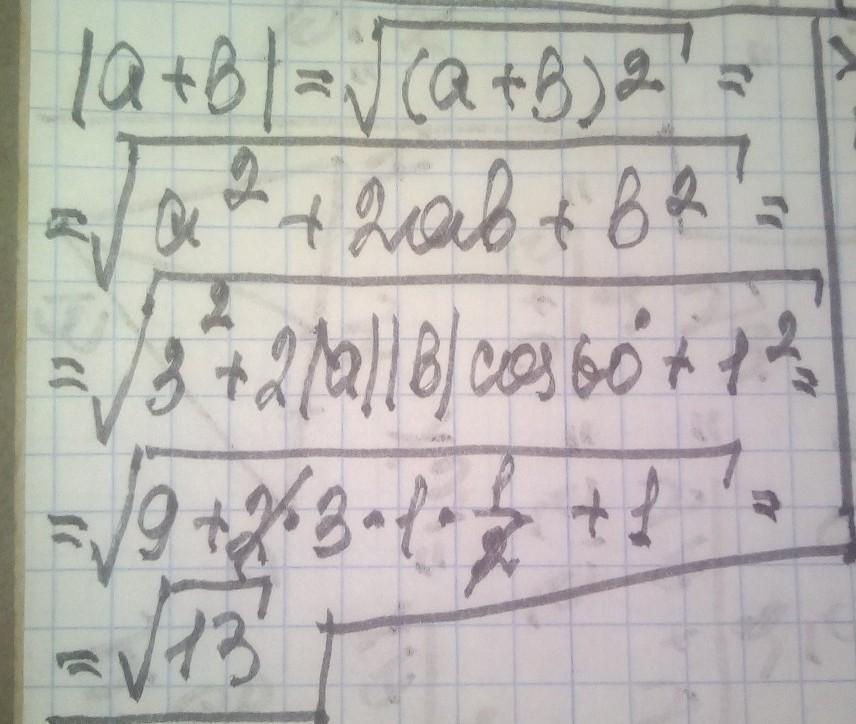 |a+b| = √(a+b)2 =
= √a² + 2ab + b² =
= √3² + 2|a||b| cos 60° + 1² =
= √9 + 2·3·1·1/2 + 1 =
= √13